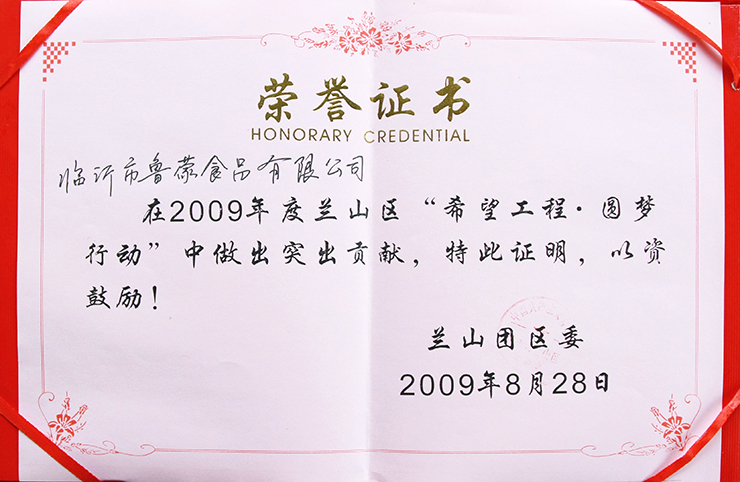 荣誉证书
HONORARY CREDENTIAL
临沂市鲁蒙食品有限公司
在2009年度兰山区“希望工程·圆梦
行动”中做出突出贡献，特此证明，以资
鼓励！
兰山团区委
2009年8月28日